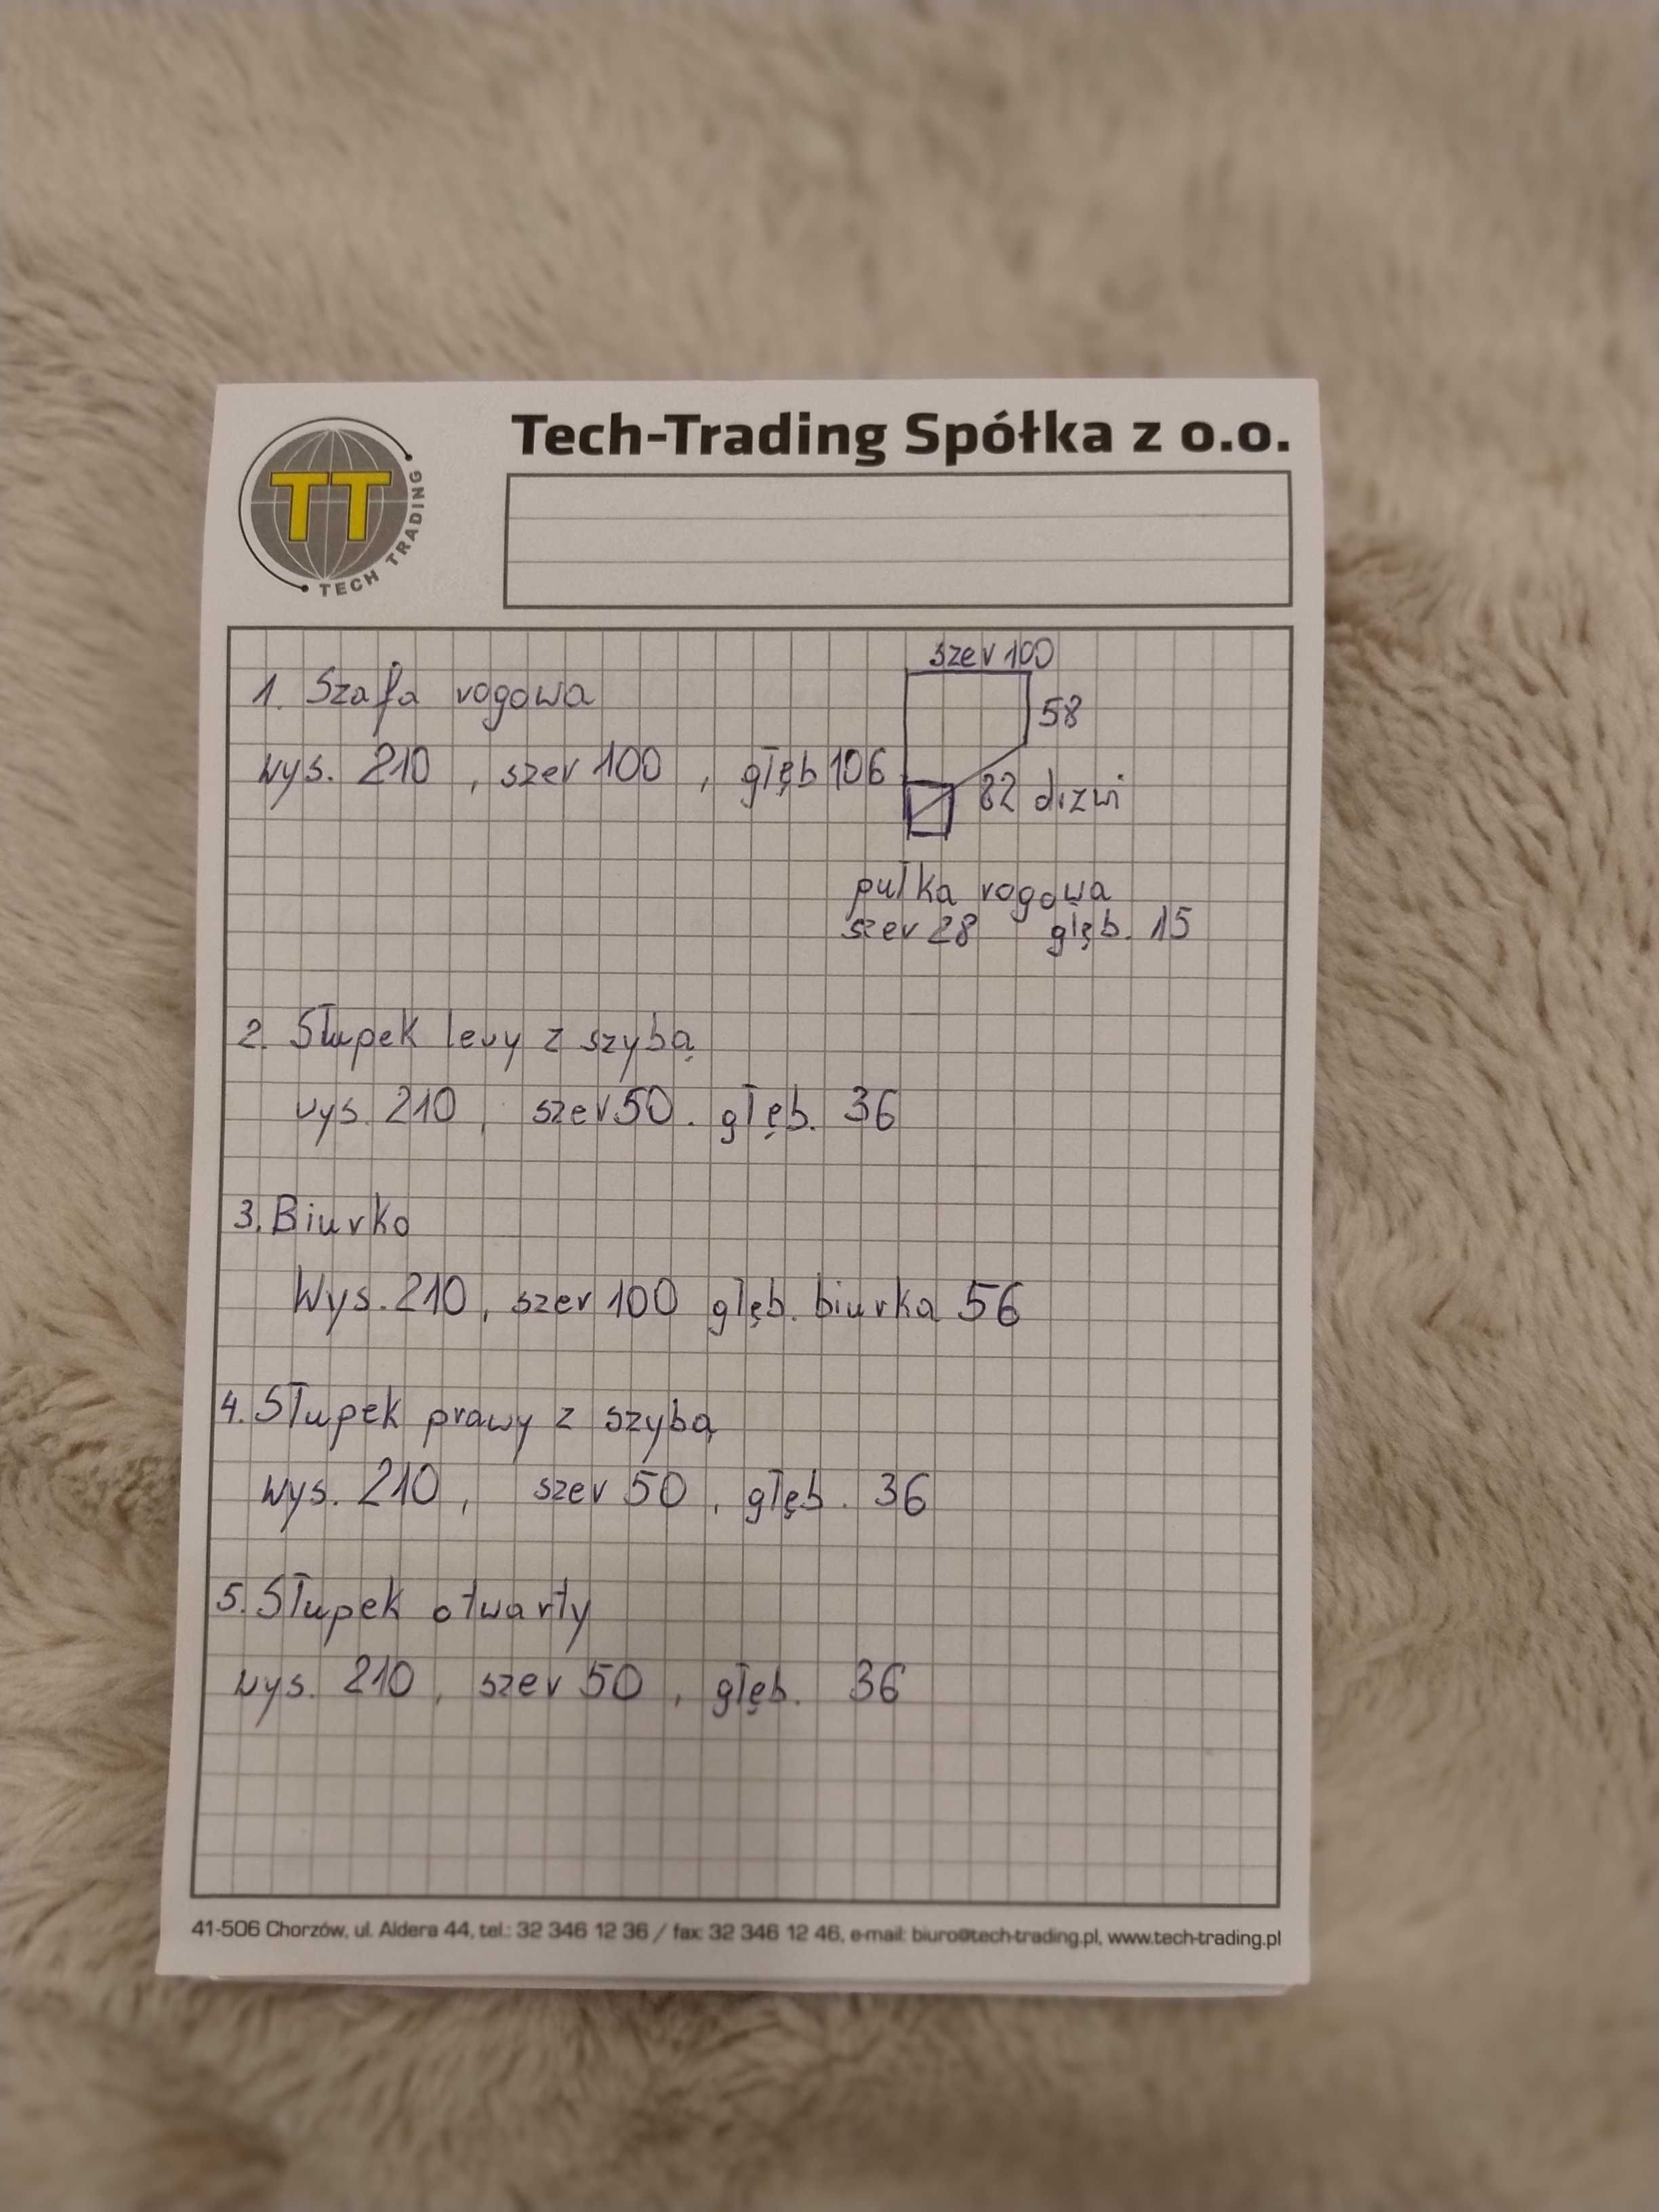 Tech-Trading Spółka z o.o.
TT
TECH TRADING
szer 100
1. Szafa rogowa
58
wys. 210 , szer 100 , głęb 106
82 drzwi
pułka rogowa
szer 28 głęb. 15
2. Słupek lewy z szybą
wys. 210 , szer 50 . głęb. 36
3. Biurko
Wys. 210 , szer 100 głęb. biurka 56
4. Słupek prawy z szybą
wys. 210 , szer 50 , głęb. 36
5. Słupek otwarty
wys. 210 , szer 50 , głęb. 36
41-506 Chorzów, ul. Aldera 44, tel.: 32 346 12 36 / fax: 32 346 12 46, e-mail: biuro@tech-trading.pl, www.tech-trading.pl